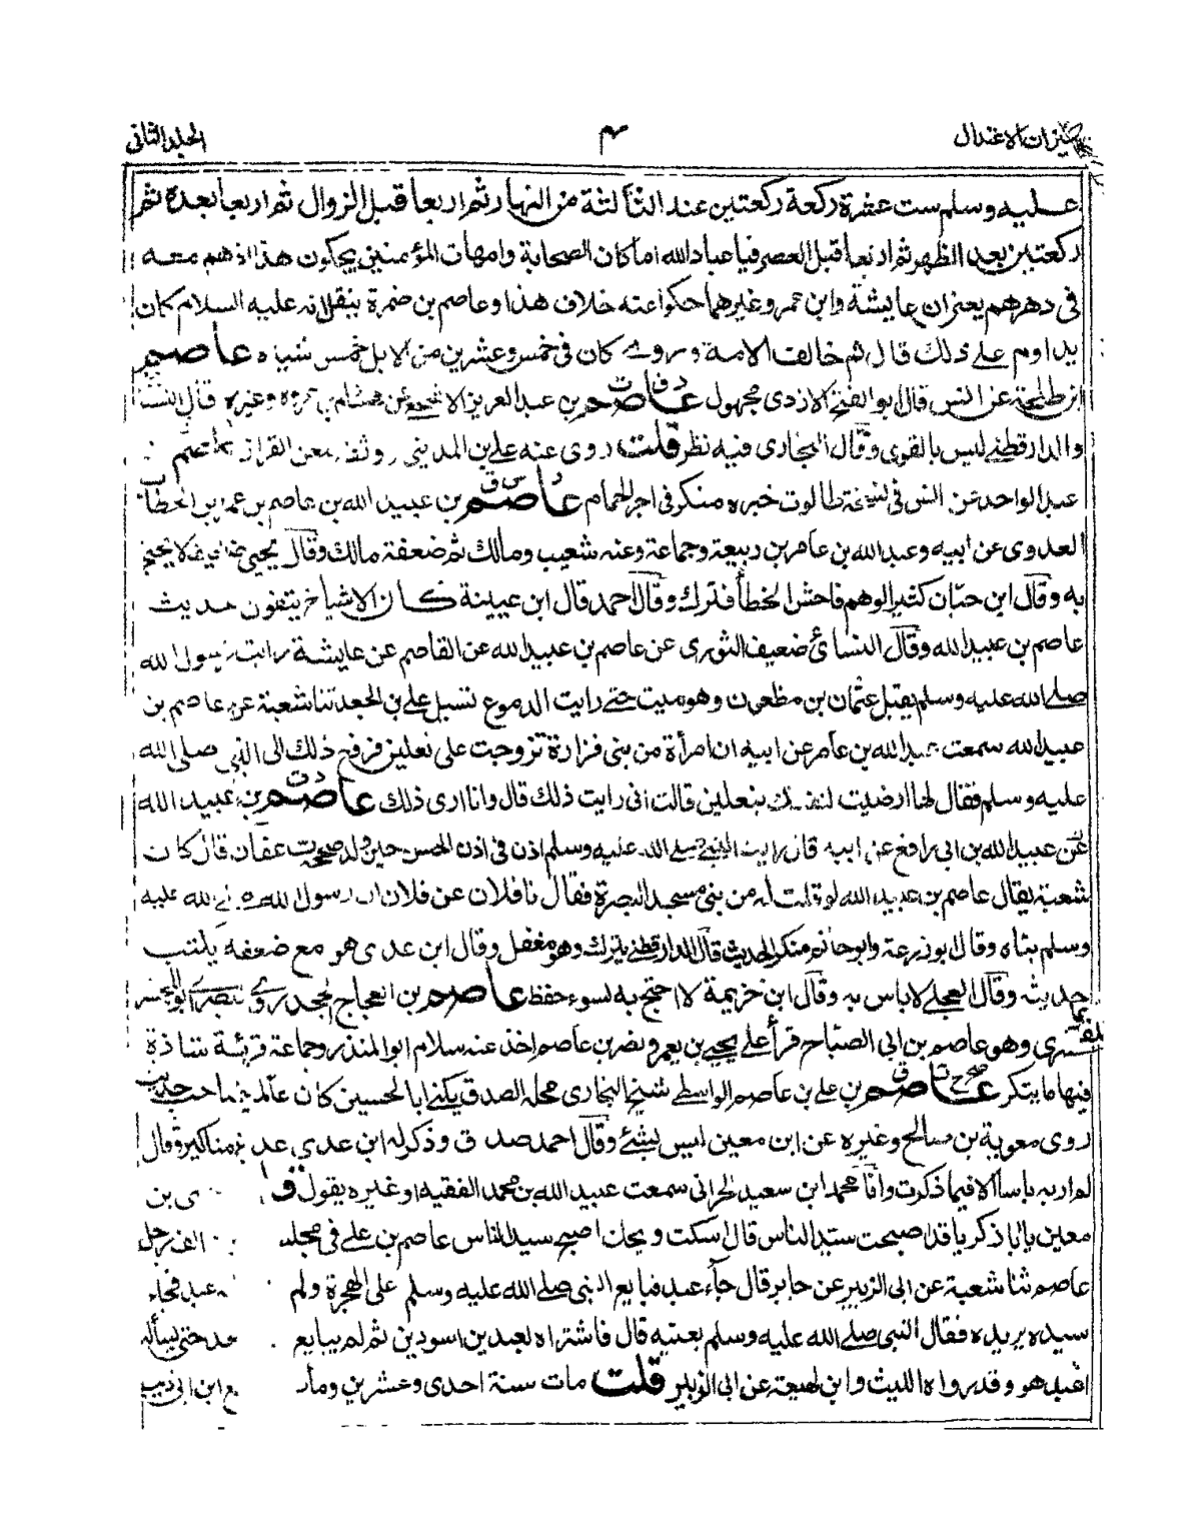 ميزان الاعتدال ٤ الجلد الثاني
عليه وسلم ست عشرة ركعة ركعتين عند الثالثة من النهار ثم اربعا قبل الزوال ثم اربعا بعده ثم
ركعتين بعد الظهر ثم اربعا قبل العصر فيا عباد الله اما كان الصحابة وامهات المؤمنين يحكون هذا اذ هم معه
فى دهرهم يعنى ان عايشة وابن عمر وغيرهما حكوا عنه خلاف هذا وعاصم بن ضمرة ينقل انه عليه السلام كان
يداوم على ذلك قال ثم خالف الامة وروى كان فى خمس وعشرين من الابل خمس شياه عاصم
ابن طلحة عن انس قال ابو الفتح الازدى مجهول د ق ت عاصم بن عبد العزيز الاشجعى عن هشام بن عروة وغيره قال النسا
والدارقطنى ليس بالقوى وقال البخارى فيه نظر قلت روى عنه على بن المدينى ووثقه معن القزاز عاصم بن
عبد الواحد عن انس فى نسخة طالوت خبره منكر فى اجر الحمام د س ق عاصم بن عبيد الله بن عاصم بن عمر بن الخطاب
العدوى عن ابيه وعبد الله بن عامر بن ربيعة وجماعة وعنه شعيب ومالك ثم ضعفه مالك وقال يحيى ضعيف لا يحتج
به وقال ابن حبان كثير الوهم فاحش الخطأ فترك وقال احمد قال ابن عيينة كان الاشياخ يتقون حديث
عاصم بن عبيد الله وقال النسائ ضعيف الثورى عن عاصم بن عبيد الله عن القاسم عن عايشة رايت رسول الله
صلى الله عليه وسلم يقبل عثمان بن مظعون وهو ميت حتى رايت الدموع تسيل على بن الجعد ثنا شعبة عن عاصم بن
عبيد الله سمعت عبد الله بن عامر عن ابيه ان امرأة من بنى فزارة تزوجت على نعلين فرفع ذلك الى النبى صلى الله
عليه وسلم فقال لها ارضيت لنفسك بنعلين قالت انى رايت ذلك قال وانا ارى ذلك د ت عاصم بن عبيد الله
عن عبيد الله بن ابى رافع عن ابيه قال رايت النبى صلى الله عليه وسلم اذن فى اذن الحسن حين ولد صححه ت عفان قال كان
شعبة يقال عاصم بن عبيد الله لو قلت له من بنى مسجد البصرة فقال نا فلان عن فلان ان رسول الله صلى الله عليه
وسلم بناه وقال ابو زرعة وابو حاتم منكر الحديث قال الدارقطنى يترك وهو مغفل وقال ابن عدى هو مع ضعفه يكتب
حديثه وقال العجلى لا باس به وقال ابن خزيمة لا احتج به لسوء حفظ عاصم بن العجاج الجحدرى بصرى ابو المجشر
المقرى وهو عاصم بن ابى الصباح قرأ على يحيى بن يعمر ونصر بن عاصم اخذ عنه سلام ابو المنذر وجماعة قرئة شاذة
فيها ما ينكر صح خ ت ق عاصم بن على بن عاصم الواسطى شيخ البخارى محله الصدق يكنى ابا الحسين كان عالما صاحب حديث
روى معوية بن صالح وغيره عن ابن معين ليس بشئ وقال احمد صدوق وذكر له ابن عدى عدة مناكير وقال
لم ار به باسا الا فيما ذكرت وانا محمد ابن سعيد الحرانى سمعت عبيد الله بن محمد الفقيه او غيره يقول ق ى بن
معين يا ابا ذكريا قد اصبحت سيد الناس قال اسكت ويحك اصبح سيد الناس عاصم بن على فى مجلسه الف رجل
عاصم ثنا شعبة عن ابى الزبير عن جابر قال جاء عبد فبايع النبى صلى الله عليه وسلم على الهجرة ولم عبد فجاء
سيده يريده فقال النبى صلى الله عليه وسلم بعنيه قال فاشتراه بعبدين اسودين ثم لم يبايع حتى يسأله
اعبد هو وقد رواه الليث وابن لهيعة عن ابى الزبير قلت مات سنة احدى وعشرين وما ابن ابى ذيب